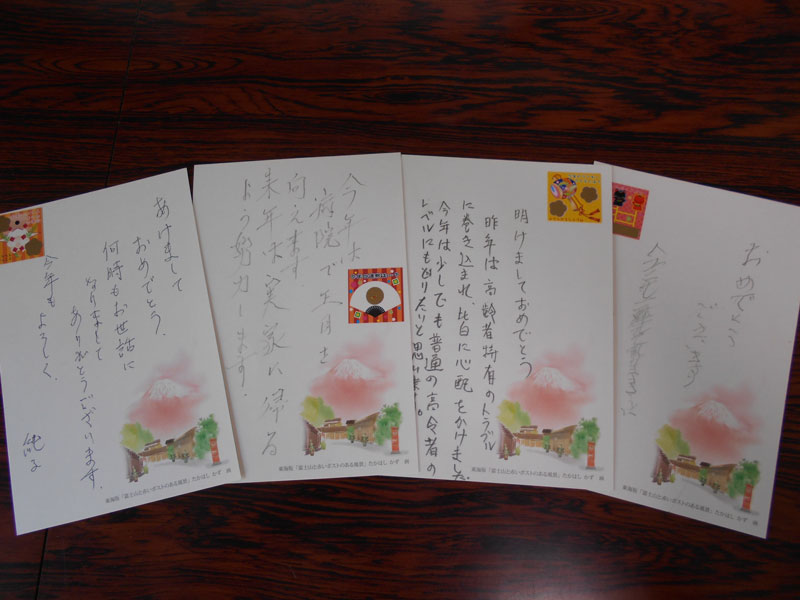 あけまして
おめでとう、
何時もお世話に
なりまして
ありがとうございます。
今年もよろしく、
純子
東海版「富士山と赤いポストのある風景」たかはし 画
今年は
病院で正月を
向えます
来年は実家に帰る
よう努力します。
東海版「富士山と赤いポストのある風景」たかはし 画
明けましておめでとう
昨年は高齢者特有のトラブル
に巻き込まれ、皆に心配をかけました
今年は少しでも普通の高令者の
レベルにもどりたいと思います。
東海版「富士山と赤いポストのある風景」たかはし 画
おめでとう
ございます
今年も
東海版「富士山と赤いポストのある風景」たかはし 画